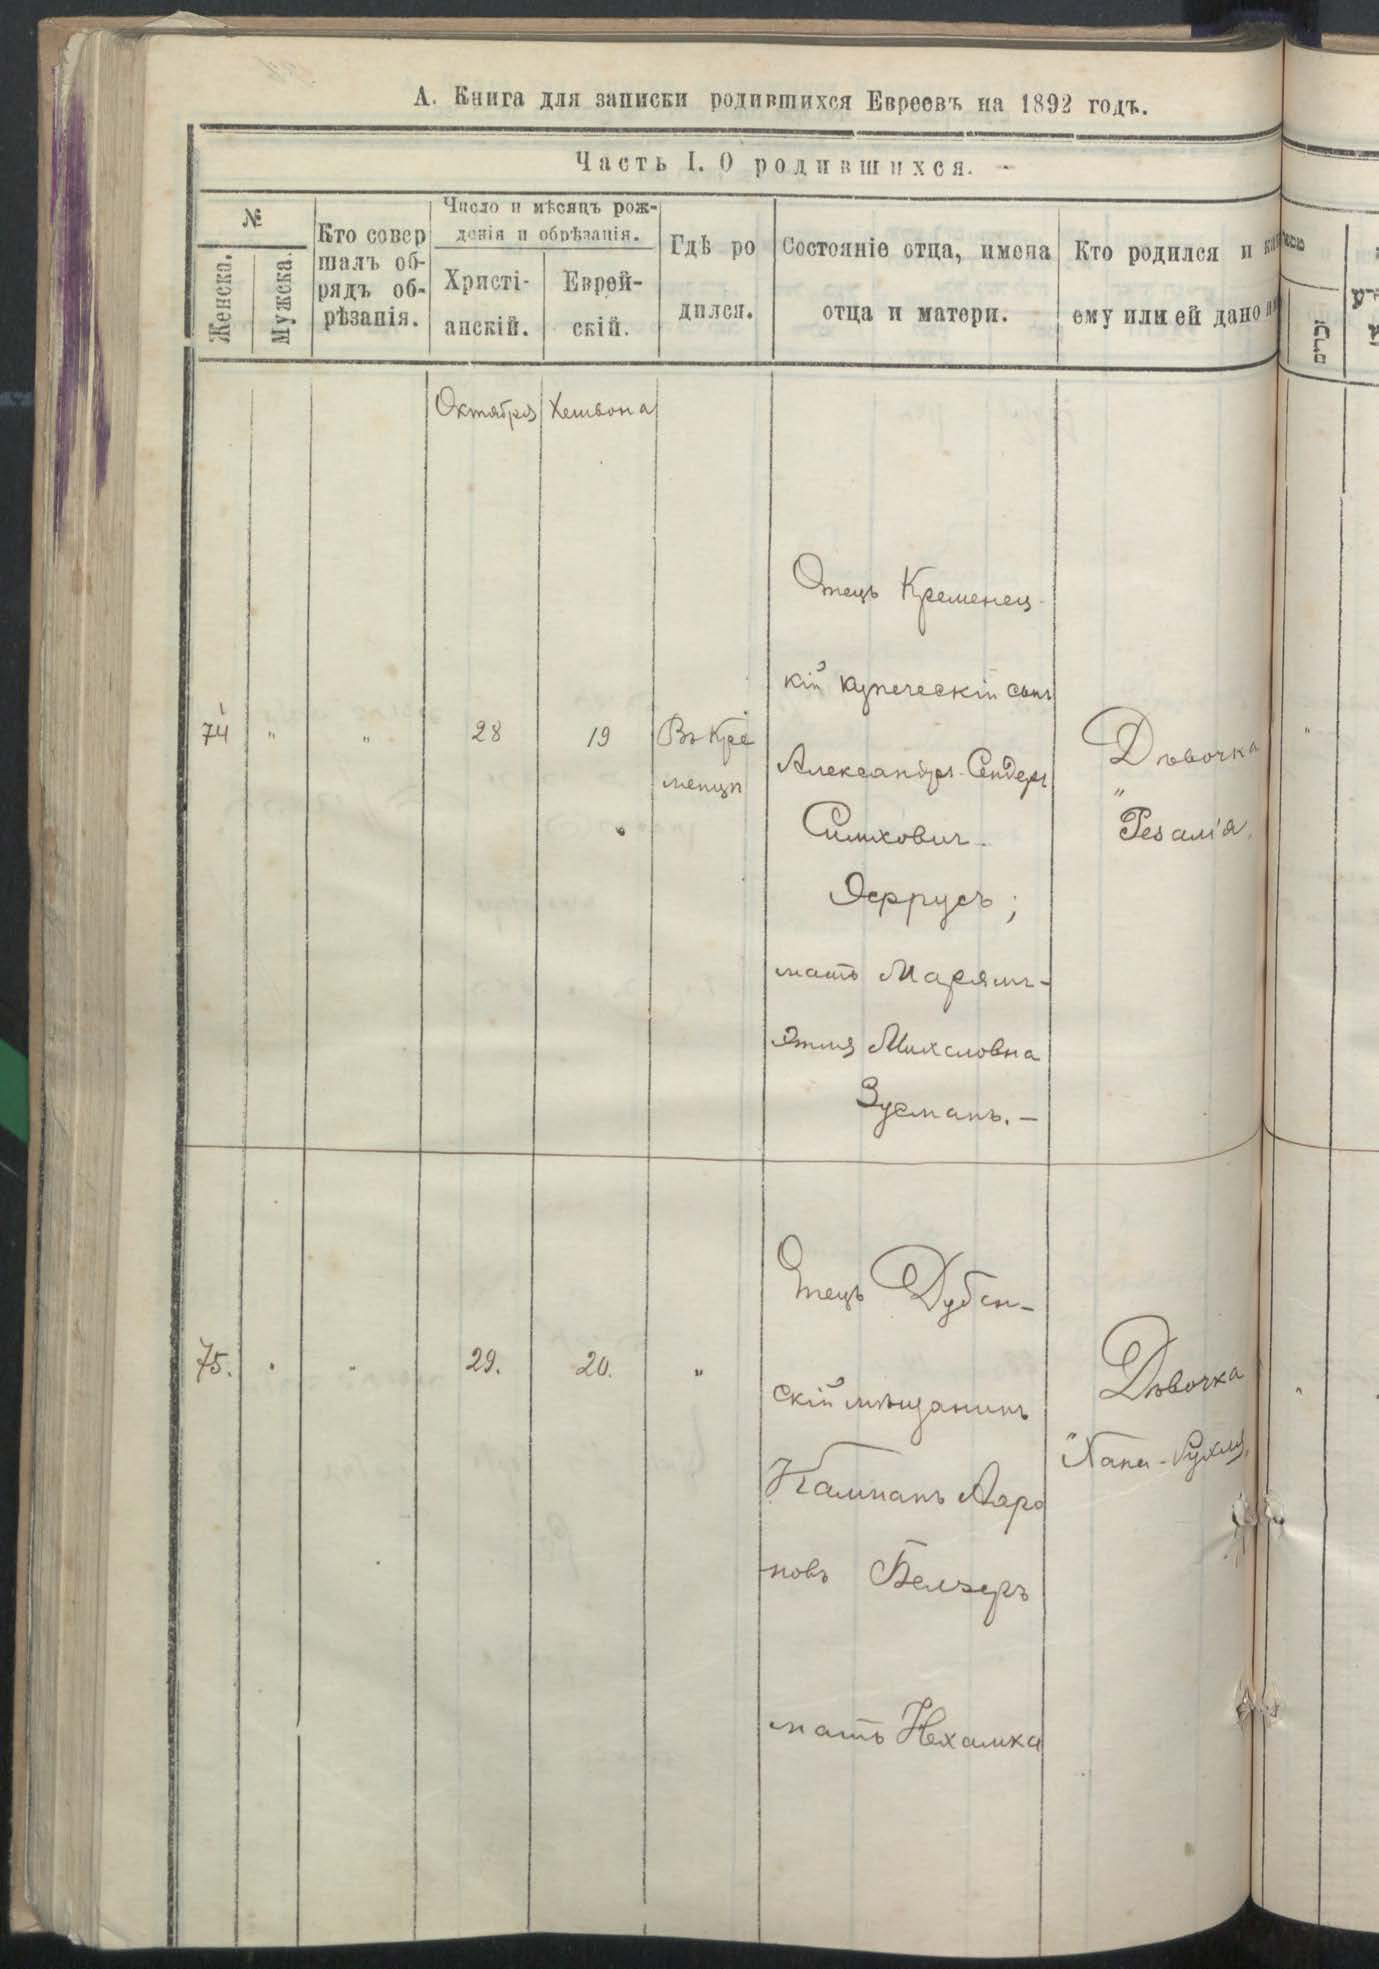 А. Книга для записки родившихся Евреевъ на 1892 годъ.
Часть I. О родившихся.
№
Женска.
Мужска.
Кто совер
шалъ об-
рядъ об-
рѣзанія.
Число и мѣсяцъ рож-
денія и обрѣзанія.
Христі-
анскій.
Еврей-
скій.
Гдѣ ро
дился.
Состояніе отца, имена
отца и матери.
Кто родился и
ему или ей дано
זכרים
Октября
Хешвона
74
"
"
28
19
Въ Кре
менцѣ
Отецъ Кременец-
кій купеческій сынъ
Александръ-Сендеръ
Симхович-
Яррусъ;
мать Марямъ-
Этля Михеловна
Зусманъ. —
Дѣвочка
"Резалія.
"
75.
"
"
29.
20.
"
Отецъ Дубен-
скій мѣщанинъ
Калманъ Ааро
новъ Белзеръ
мать Нехамка
Дѣвочка
"Хана-Рухля.
"